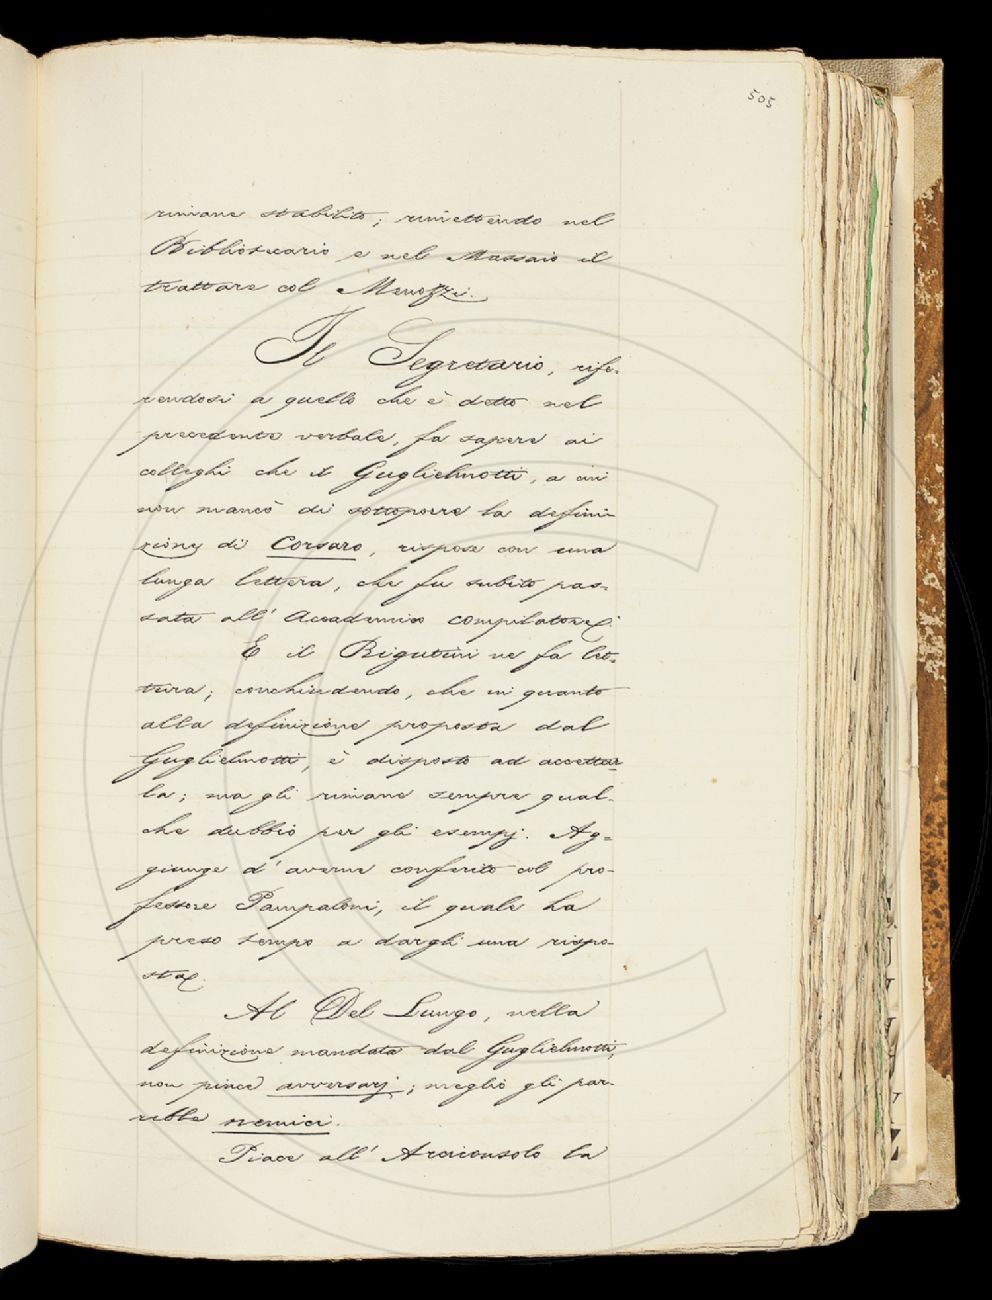 505
rimane stabilito; rimettendo nel
Bibliotecario e nel Massaio il
trattare col Menozzi.
Il Segretario, rife-
rendosi a quello che è detto nel
precedente verbale, fa sapere ai
colleghi che il Guglielmotti, a cui
non mancò di sottoporre la defini-
zione di Corsaro, rispose con una
lunga lettera, che fu subito pas-
sata all' Accademico compilatore.
E il Rigutini ne fa let-
tura; conchiudendo, che in quanto
alla definizione proposta dal
Guglielmotti, è disposto ad accettar-
la; ma gli rimane sempre qual-
che dubbio per gli esempj. Ag-
giunge d'averne conferito col pro-
fessore Pampaloni, il quale ha
preso tempo a dargli una rispo-
sta.
Al Del Lungo, nella
definizione mandata dal Guglielmotti,
non piace avversarj; meglio gli par-
rebbe nemici.
Piace all' Arciconsolo la